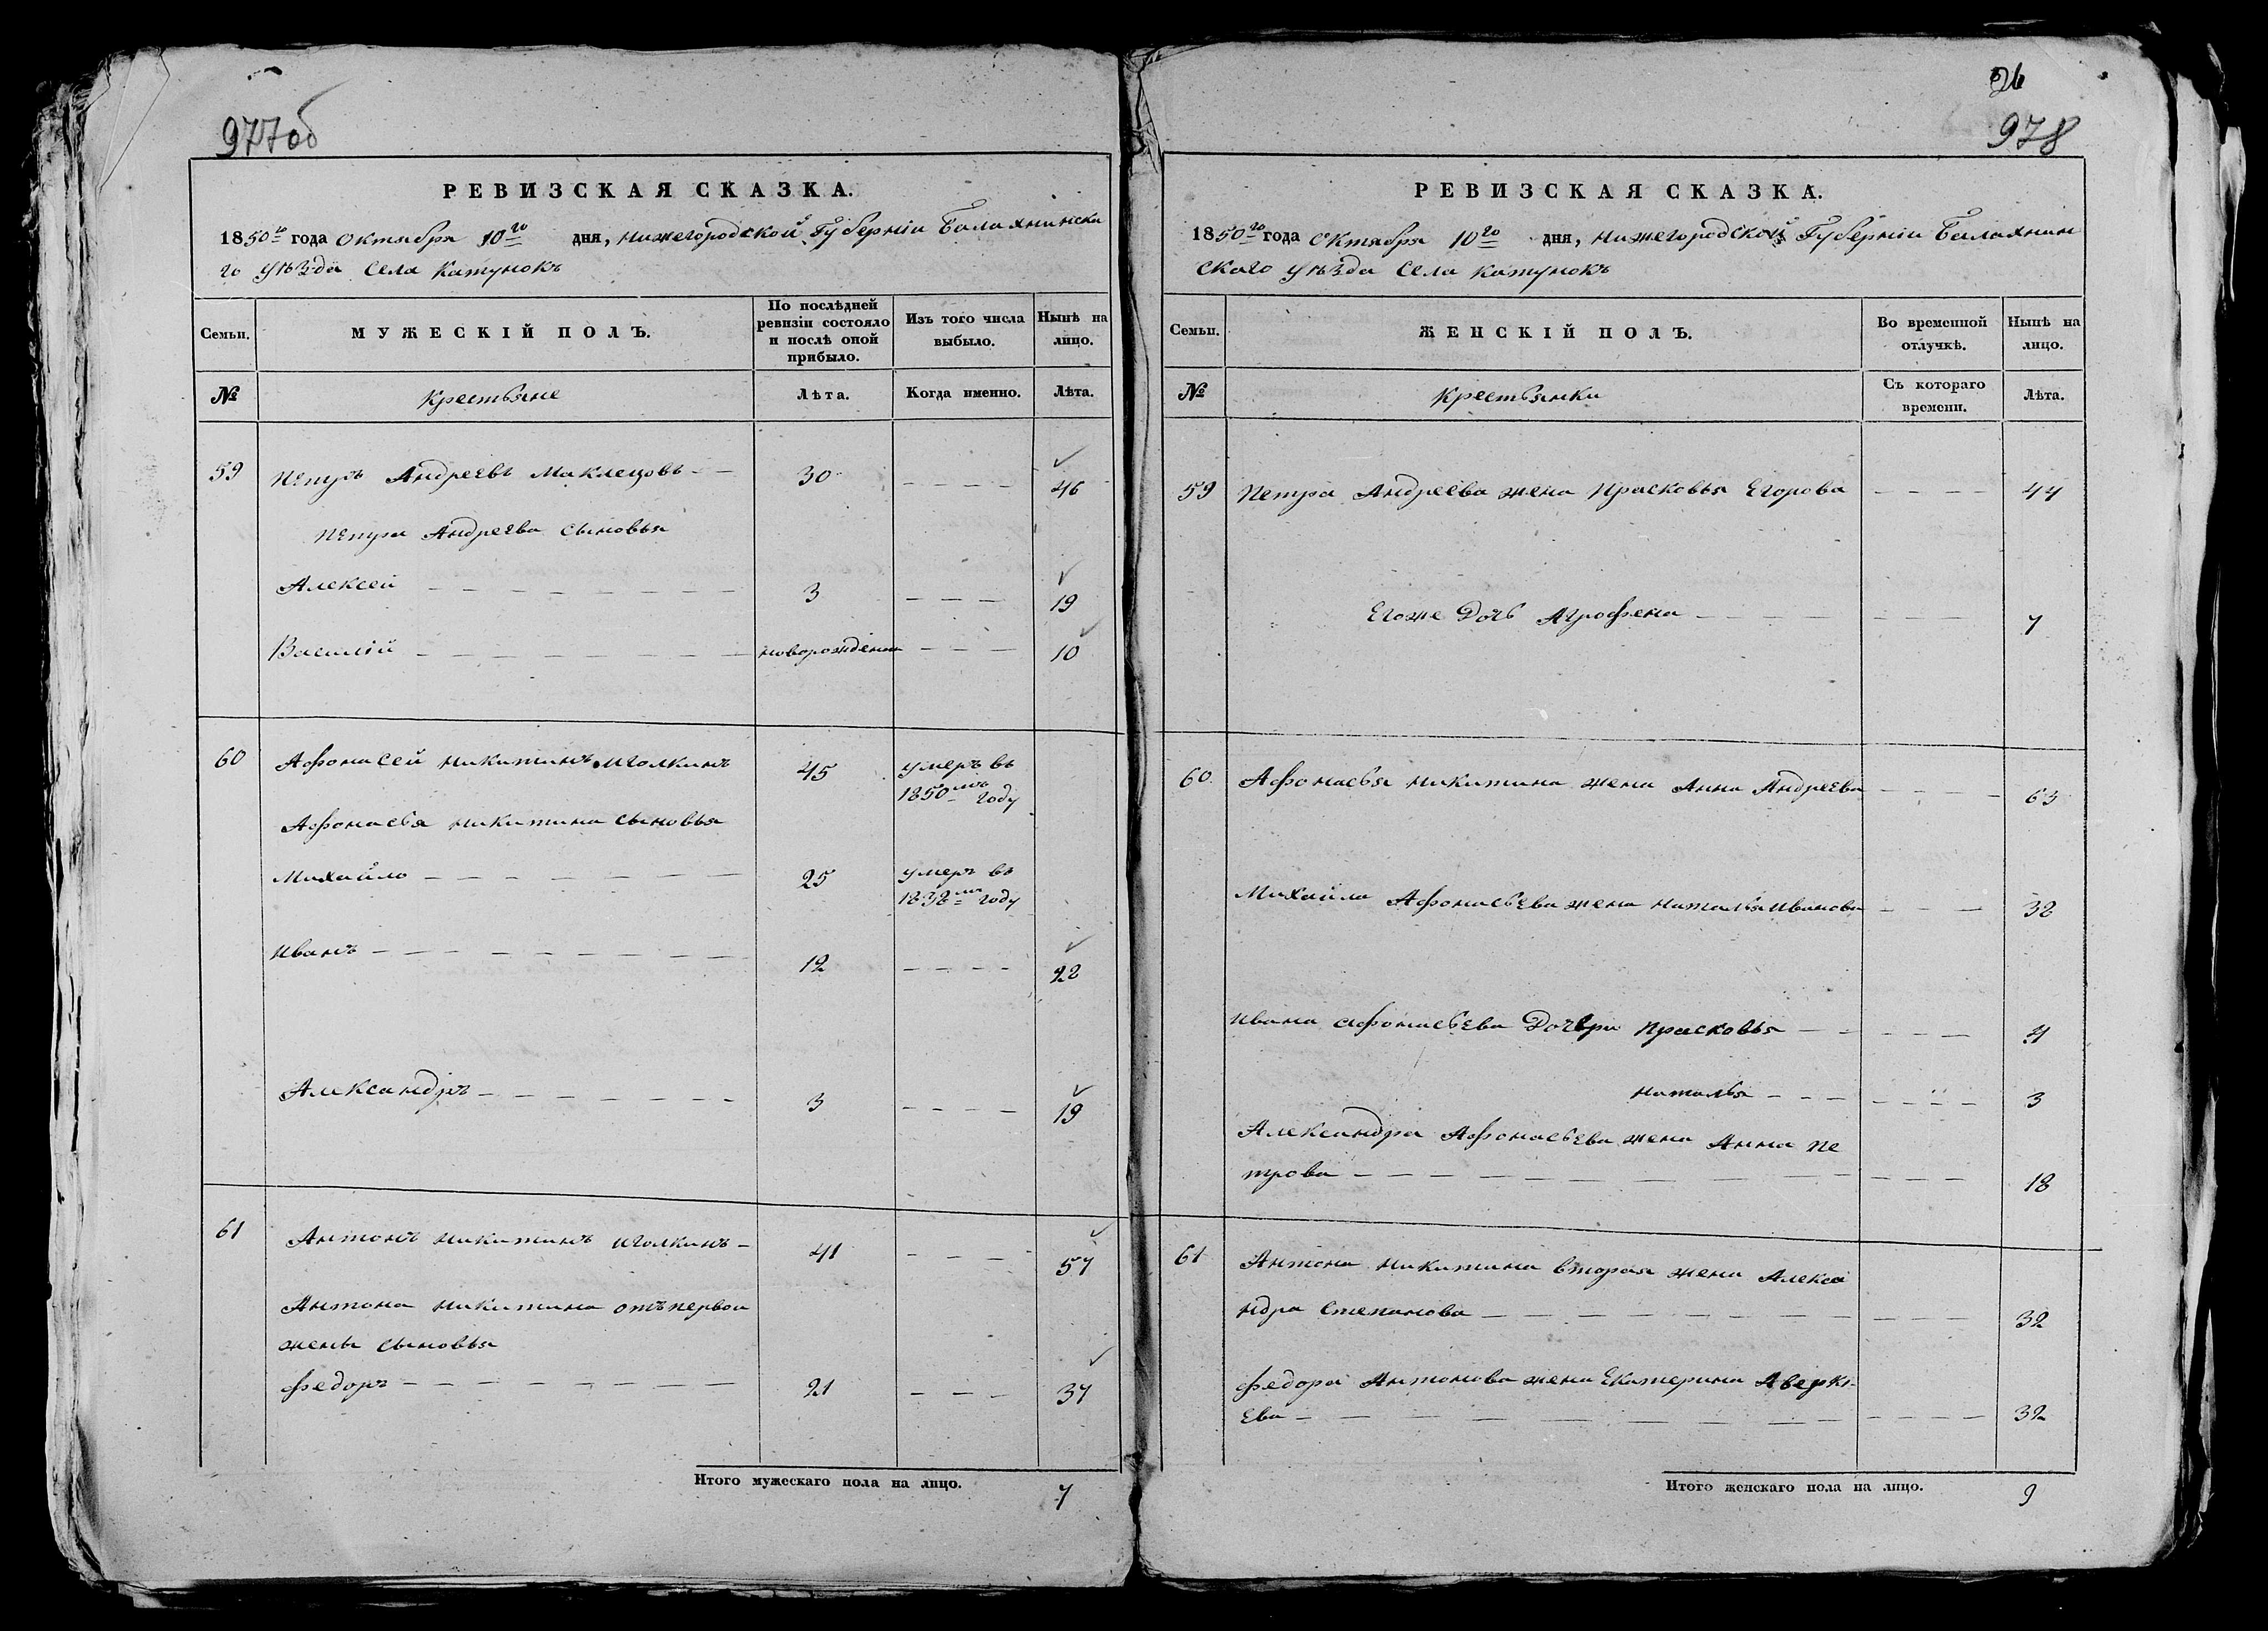 977об
РЕВИЗСКАЯ СКАЗКА.
1850го года Октября 10го дня, Нижегородской Губернiи Балахнинска
го уѣзда Села Катунокъ
Семьи.
МУЖЕСКIЙ ПОЛЪ.
По послѣдней ревизiи состояло и послѣ оной прибыло.
Изъ того числа выбыло.
Нынѣ на лицо.
№
Крестьяне
Лѣта.
Когда именно.
Лѣта.
59 Петръ Андреевъ Маклецовъ 30 46
Петра Андреева сыновья
Алексей 3 19
Василiй новорожденъ 10
60 Афонасей Никитинъ Иголкинъ 45 умеръ въ
1850мъ году
Афонасья Никитина сыновья
Михайло 25 умеръ въ
1838мъ году
Иванъ 12 28
Александръ 3 19
61 Антонъ Никитинъ Иголкинъ 41 57
Антона Никитина отъ первой
жены сыновья
Федоръ 21 37
Итого мужескаго пола на лицо. 7
26
978
РЕВИЗСКАЯ СКАЗКА.
1850го года Октября 10го дня, Нижегородской Губернiи Балахнин
скаго уѣзда Села Катунокъ
Семьи.
ЖЕНСКIЙ ПОЛЪ.
Во временной отлучкѣ.
Нынѣ на лицо.
№
Крестьянки
Съ котораго времени.
Лѣта.
59 Петра Андреева жена Прасковья Егорова 44
Егоже Дочь Агрофена 7
60 Афонасья Никитина жена Анна Андреева 63
Михайла Афонасьева жена Наталья Иванова 38
Ивана Афонасьева Дочери Прасковья 4
Наталья 3
Александра Афонасьева жена Анна Пе
трова 18
61 Антона Никитина вторая жена Алекса
ндра Степанова 32
Федора Антонова жена Екатерина Аверкi-
ева 32
Итого женскаго пола на лицо. 9